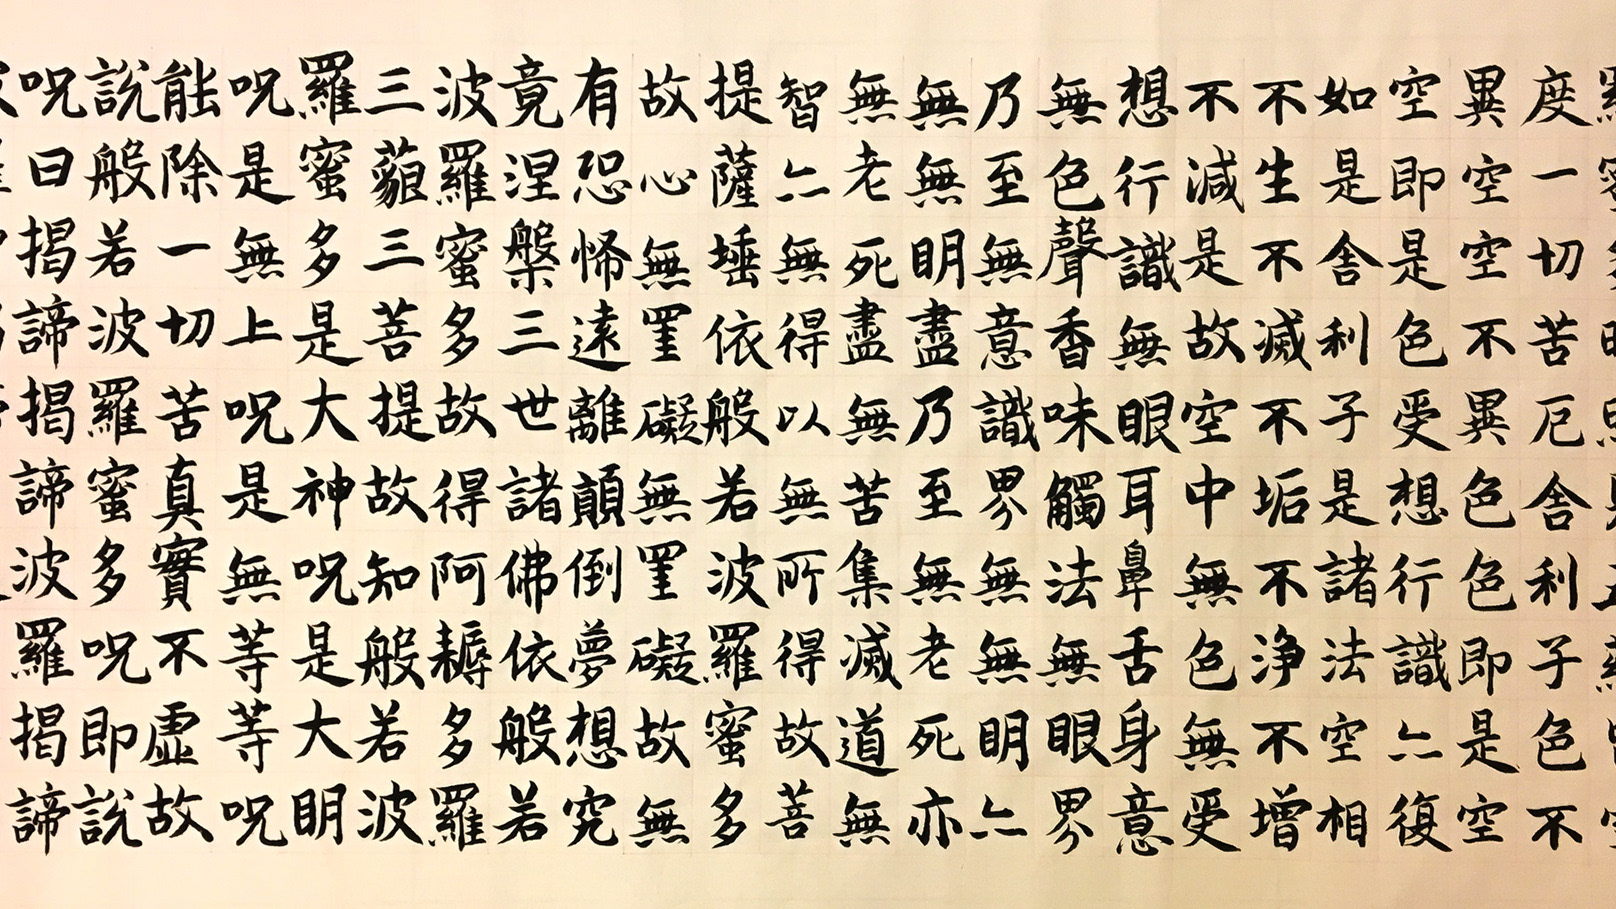 度一切苦厄舍利子色不
異空空不異色色即是空
空即是色受想行識亦復
如是舍利子是諸法空相
不生不滅不垢不淨不增
不減是故空中無色無受
想行識無眼耳鼻舌身意
無色聲香味觸法無眼界
乃至無意識界無無明亦
無無明盡乃至無老死亦
無老死盡無苦集滅道無
智亦無得以無所得故菩
提薩埵依般若波羅蜜多
故心無罣礙無罣礙故無
有恐怖遠離顛倒夢想究
竟涅槃三世諸佛依般若
波羅蜜多故得阿耨多羅
三藐三菩提故知般若波
羅蜜多是大神呪是大明
呪是無上呪是無等等呪
能除一切苦真實不虛故
說般若波羅蜜多呪即說
呪曰揭諦揭諦波羅揭諦